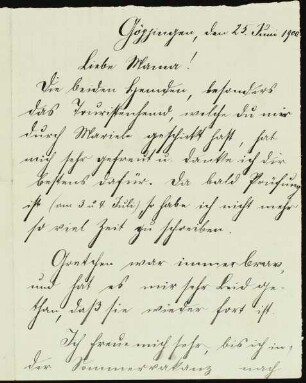 Göppingen, den 25. Juni 1900.
Liebe Mama!
Die beiden Hemden, besonders
das Touristenhemd, welche du mir
durch Mariele geschickt hast, hat
mich sehr gefreut u danke ich dir
bestens dafür. Da bald Prüfung
ist (am 3 u 4 Juli) so habe ich nicht mehr
so viel Zeit zu schreiben.
Gretchen war immer brav,
und hat es mir sehr leid ge-
than, daß sie wieder fort ist
Ich freue mich sehr, bis ich in,
der Sommervakanz nach